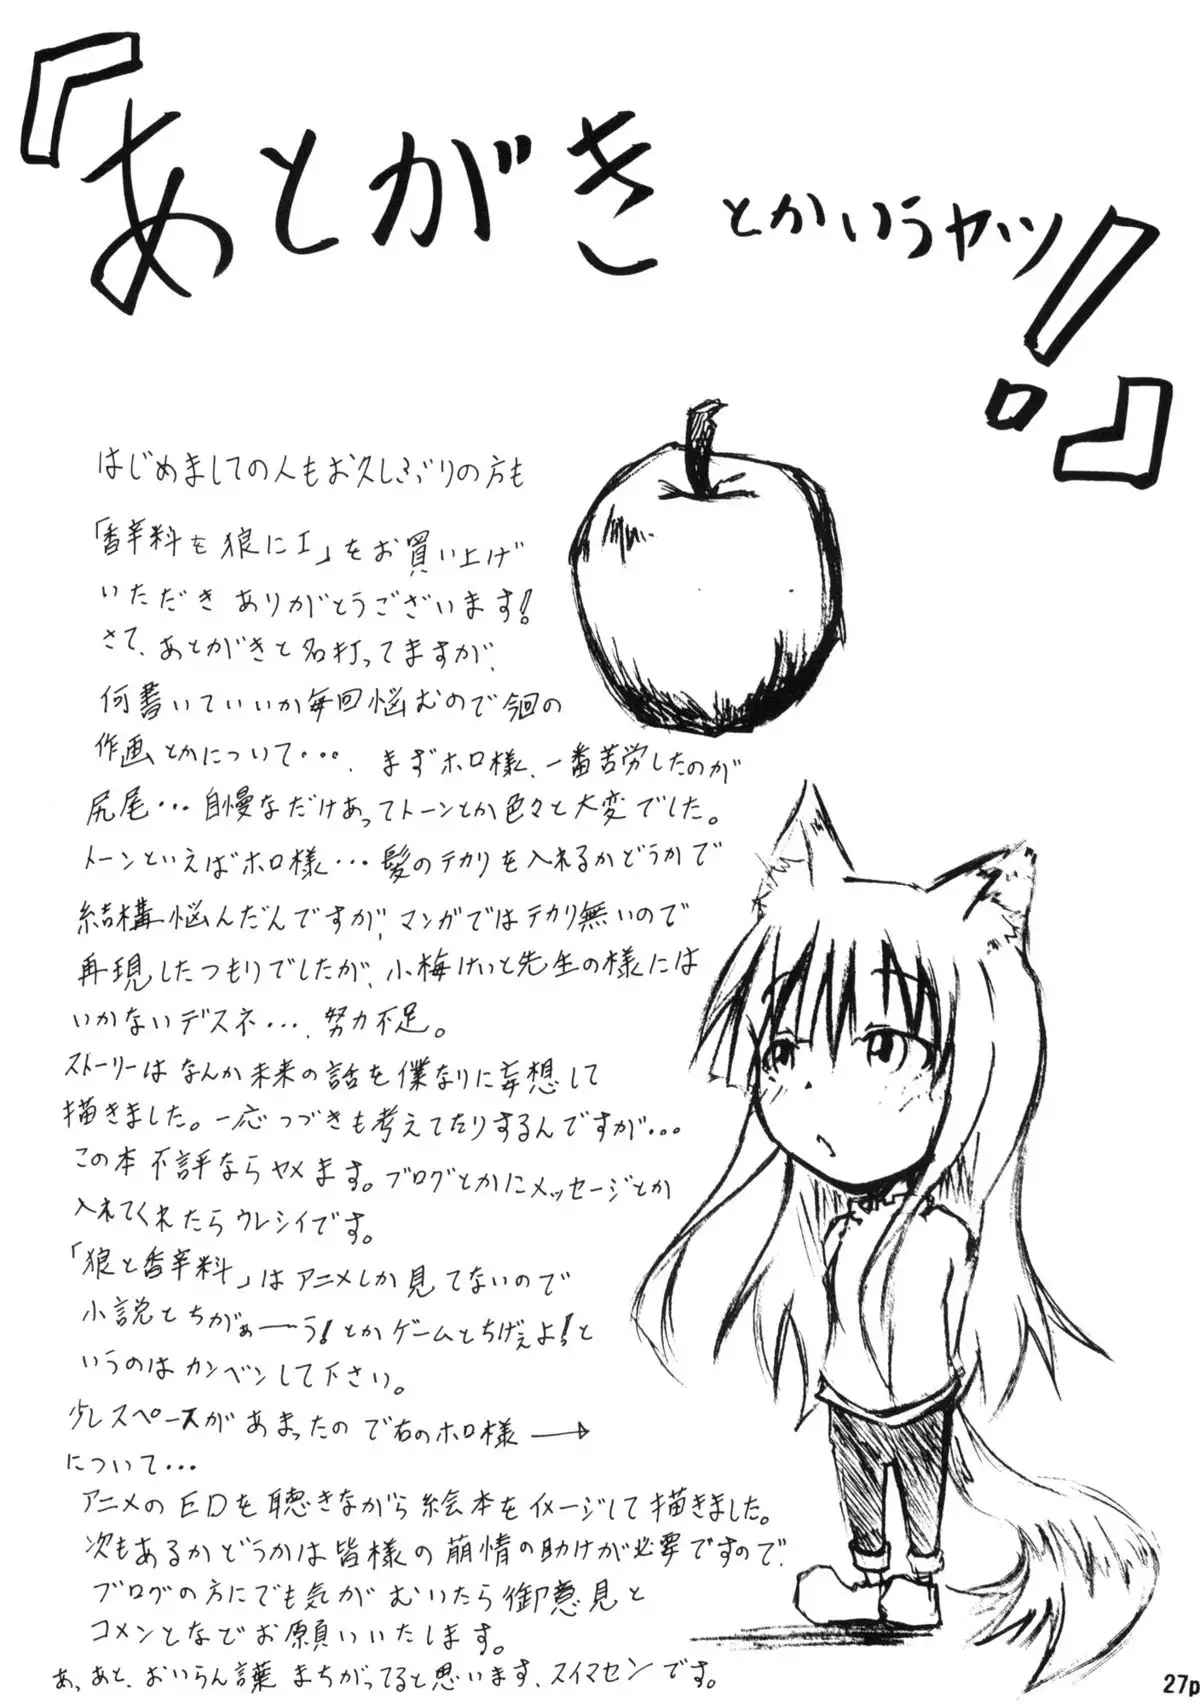 『あとがきとかいうヤツ!』
はじめましての人もお久しぶりの方も
「香辛料を狼にI」をお買い上げ
いただき ありがとうございます!
さて、あとがきと名打ってますが、
何書いていいか毎回悩むので今回の
作画とかについて・・・、まずホロ様、一番苦労したのが
尻尾・・・自慢なだけあってトーンとか色々と大変でした。
トーンといえばホロ様・・・髪のテカリを入れるかどうかで
結構悩んだんですが、マンガではテカリ無いので
再現したつもりでしたが、小梅けいと先生の様には
いかないデスネ・・・、努力不足。
ストーリーはなんか未来の話を僕なりに妄想して
描きました。一応つづきも考えてたりするんですが・・・
この本不評ならヤメます。ブログとかにメッセージとか
入れてくれたらウレシイです。
「狼と香辛料」はアニメしか見てないので
小説とちがぁーーう!とかゲームとちげぇよ!と
いうのはカンベンして下さい。
少しスペースがあまったので右のホロ様→
について・・・
アニメのEDを聴きながら絵本をイメージして描きました。
次もあるかどうかは皆様の萌情の助けが必要ですので、
ブログの方にでも気がむいたら御意見と
コメントなでお願いいたします。
あ、あと、おいらん言葉 まちがってると思います、スイマセンです。
27p